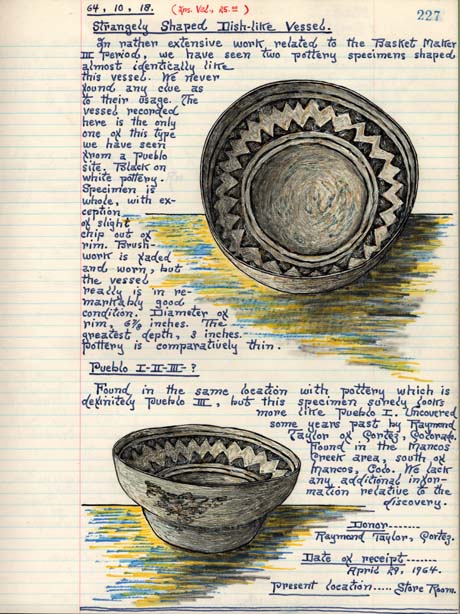 64, 10, 18. (Ins. Val., 25.00) 227
Strangely Shaped Dish-like Vessel.
In rather extensive work, related to the Basket Maker
III Period, we have seen two pottery specimens shaped
almost identically like
this vessel. We never
found any clue as
to their usage. The
vessel recorded
here is the only
one of this type
we have seen
from a Pueblo
site. Black on
white pottery.
Specimen is
whole, with ex-
ception
of slight
chip out of
rim. Brush-
work is faded
and worn, but
the vessel
really is in re-
markably good
condition. Diameter of
rim, 6⅞ inches. The
greatest depth, 3 inches.
Pottery is comparatively thin.
Pueblo I-II-III-?
Found in the same location with pottery which is
definitely Pueblo III, but this specimen surely looks
more like Pueblo I. Uncovered
some years past by Raymond
Taylor of Cortez, Colorado.
Found in the Mancos
Creek area, south of
Mancos, Colo. We lack
any additional infor-
mation relative to the
discovery.
Donor......
Raymond Taylor, Cortez.
Date of receipt......
April 29, 1964.
Present location..... Store Room.